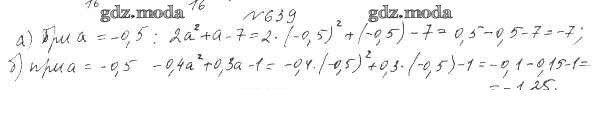 16 16
gdz.moda №639 gdz.moda
а) При a = -0,5 : 2a² + a - 7 = 2 · (-0,5)² + (-0,5) - 7 = 0,5 - 0,5 - 7 = -7;
б) при a = -0,5 -0,4a² + 0,3a - 1 = -0,4 · (-0,5)² + 0,3 · (-0,5) - 1 = -0,1 - 0,15 - 1 =
= -1,25.